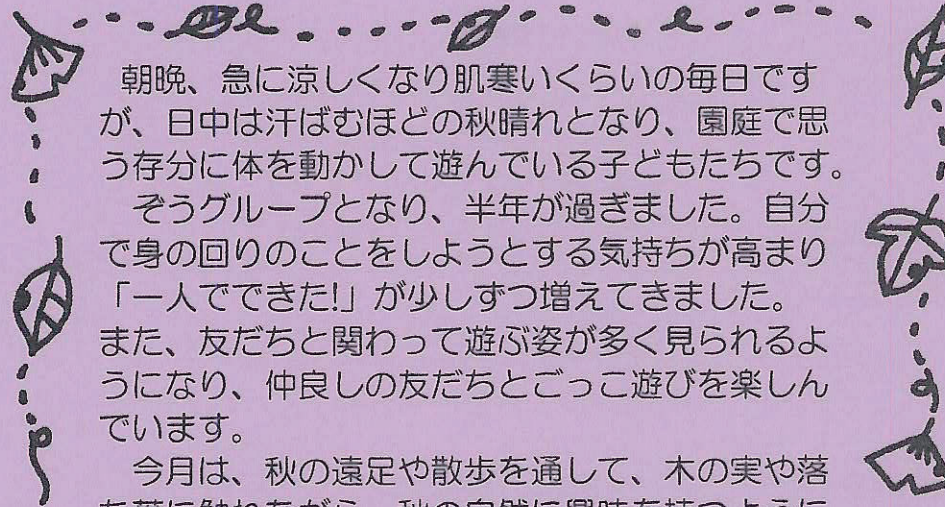 朝晩、急に涼しくなり肌寒いくらいの毎日です
が、日中は汗ばむほどの秋晴れとなり、園庭で思
う存分に体を動かして遊んでいる子どもたちです。
ぞうグループとなり、半年が過ぎました。自分
で身の回りのことをしようとする気持ちが高まり
「一人でできた!」が少しずつ増えてきました。
また、友だちと関わって遊ぶ姿が多く見られるよ
うになり、仲良しの友だちとごっこ遊びを楽しん
でいます。
今月は、秋の遠足や散歩を通して、木の実や落
ち葉に触れながら、秋の自然に興味を持つように